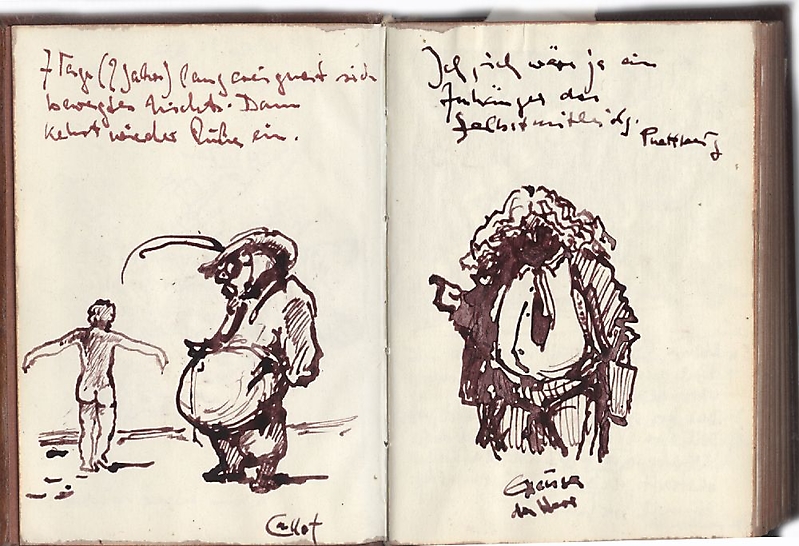 7 Tage (7 Jahre) lang ereignet sich
bewegtes Nichts. Dann
kehrt wieder Ruhe ein.
Callot
Ich, ich wäre ja ein
Anhänger des
Selbstmitleids.